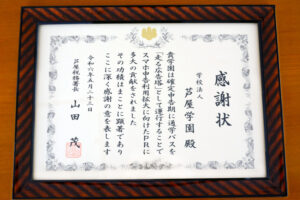 感謝状
学校法人
芦屋学園 殿
貴学園は確定申告期に通学バスを
「走る広告塔」として運行することで
スマホ申告利用拡大に向けたPRに
多大の貢献をされました
その功績はまことに顕著であり
ここに深く感謝の意を表します
令和六年五月二十三日
芦屋税務署長
山田 茂